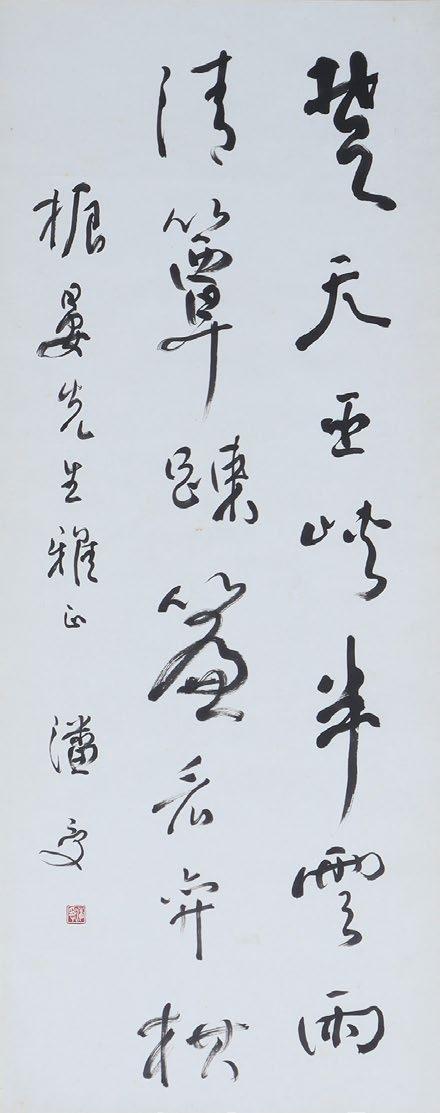 楚天巫峽半雲雨
清簟踈簾看弈棋
振晏先生雅正 潘受